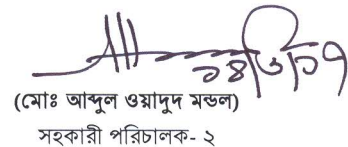 ১৪/৩/১৭
(মোঃ আব্দুল ওয়াদুদ মন্ডল)
সহকারী পরিচালক- ২